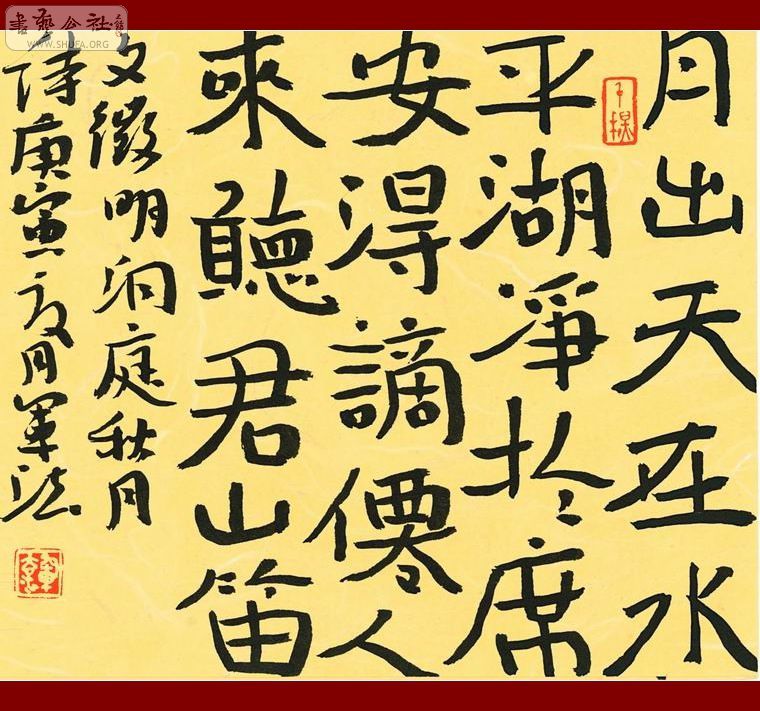 月出天在水
平湖净於席
安得謫僊人
來聽君山笛
文徵明洞庭秋月
詩庚寅夏月軍法
WWW.SHUFA.ORG